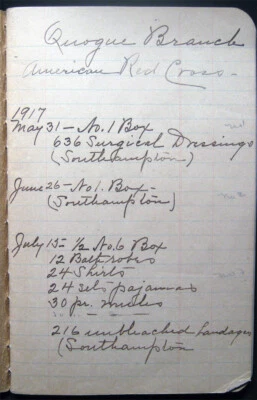 Quogue Branch
American Red Cross-
1917
May 31 - No. 1 Box
636 Surgical Dressings
(Southampton)
June 26 - No 1. Box -
(Southampton)
July 13 - 1/2 No. 6 Box
12 Bath robes
24 Shirts
24 sets pajamas
30 pr.
216 unbleached bandages
(Southampton